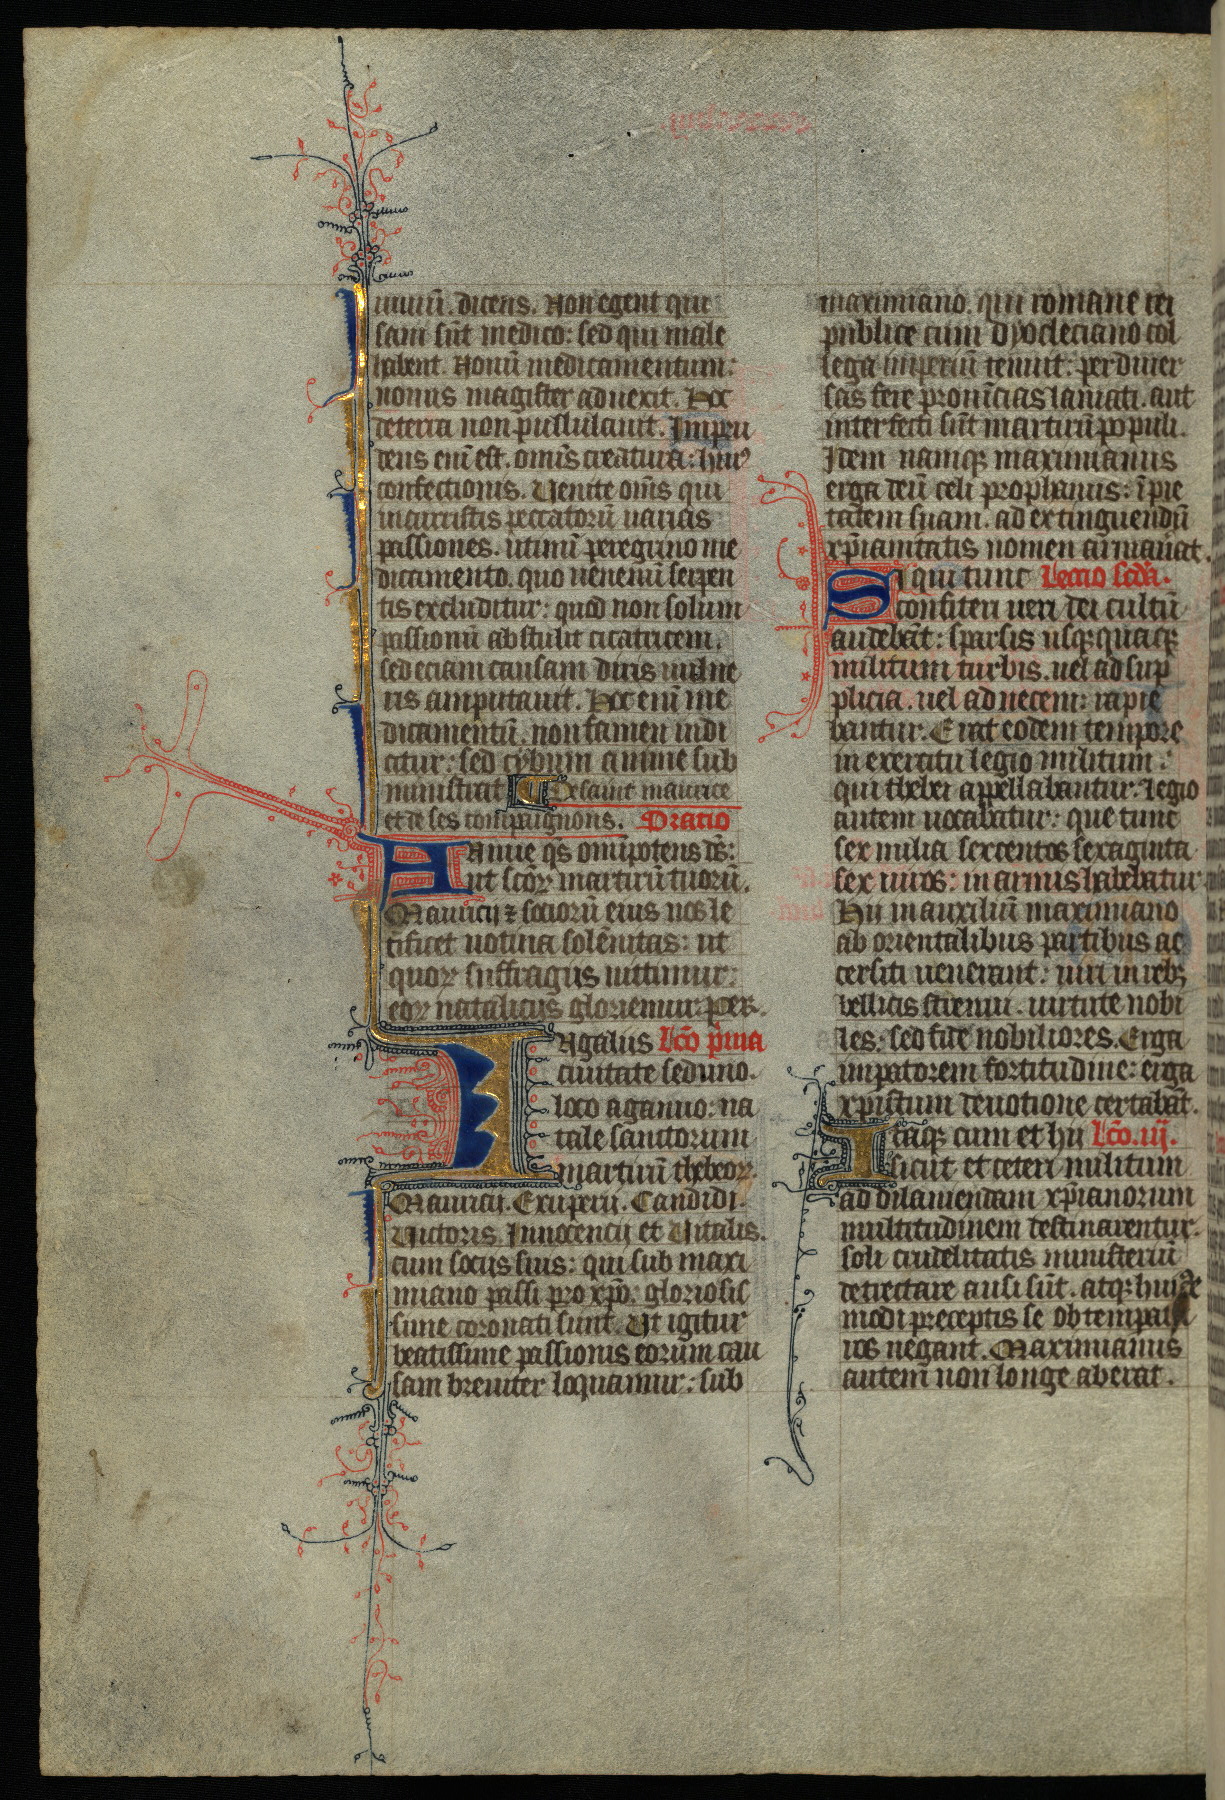 uiuiū. dicens. Non egent qui
sani sūt medico: sed qui male
habent. Nouū medicamentum:
nouus magister aduexit. Hec
de terra non pullulauit. Impru
dens enī est. omīs creatura: huiꝰ
confectionis. Uenite om̄s qui
incurristis peccatorū uarias
passiones. utimī peregrino me
dicamento. quo uenenū serpen
tis excluditur: quod non solum
passionū abstulit cicatricem.
sed eciam causam diris uulne
ris amputauit. Hec enī me
dicamentū. non tamen indi
citur: sed cybum anime sub
ministrat. De saint maurice
et de ses compaignons. Oratio
Annue q̄s omīpotens d̄s:
ut scōꝝ martirū tuorū.
Mauricij ⁊ sociorū eius nos le
tificet uotiua solēnitas: ut
quoꝝ suffragijs nitimur:
eoꝝ natalicijs gloriemur. per.
Agalius Lcō p̄ma
ciuitate seduno.
loco agauno: na
tale sanctorum
martirū thebeoꝝ.
Mauricij. Exuperij. Candidi.
Uictoris. Innocencij et Uitalis.
cum socijs suis: qui sub maxi
miano passi pro xp̄o: gloriosis
sime coronati sunt. Ut igitur
beatissime passionis eorum cau
sam breuiter loquamur: sub
maximiano. qui romane rei
publice cum dyocleciano col
lega imperiū tenuit: per diuer
sas fere prouīcias laniati. aut
interfecti sūt martirū populi.
Idem namqꝫ maximianus
erga deū celi prophanus: īpie
tatem suam. ad extinguendū
xp̄ianitatis nomen armauāt.
Si qui tunc Lectio scd̄a.
confiteri ueri dei cultū
audebāt: sparsis usqꝫ quaqꝫ
militum turbis. uel ad sup
plicia. uel ad necem: rapie
bantur. Erat eodem tempore
in exercitu legio militum:
qui thebei appellabantur. Legio
autem uocabatur: que tunc
sex milia sexcentos sexaginta
sex uiros: in armis habebatur.
Hii in auxiliū maximiano
ab orientalibus partibus ac
cersiti uenerant: uiri in rebꝫ
bellicis strenui. uirtute nobi
les: sed fide nobiliores. Erga
imp̄atorem fortitudine: erga
xpistum deuotione certabāt.
Itaqꝫ cum et hii Lcō. iij.
sicut et ceteri militum
ad dilaniendam xp̄ianorum
multitudinem destinarentur.
soli crudelitatis ministeriū
detrectare ausi sūt. atqꝫ huiꝰce
modi preceptis se obtempatu
ros negant. Maximianus
autem non longe aberat.